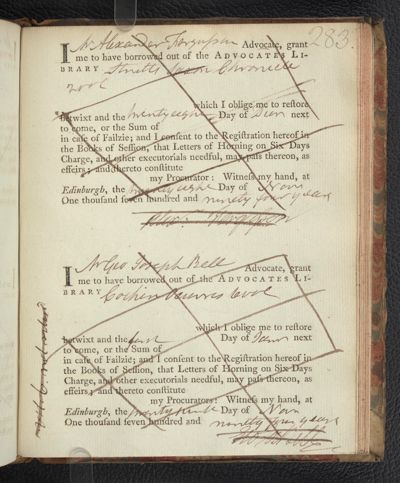 283.
I Mr Alexander Ferguson Advocate, grant
me to have borrowed out of the ADVOCATES LI-
BRARY Strutts Saxon Chronicle
2 vol
which I oblige me to restore
betwixt and the twenty eight Day of Decr next
to come, or the Sum of
in case of Failzie; and I consent to the Registration hereof in
the Books of Session, that Letters of Horning on Six Days
Charge, and other executorials needful, may pass thereon, as
effeirs; and thereto constitute
my Procurator: Witness my hand, at
Edinburgh, the twenty eight Day of Novr
One thousand seven hundred and ninety four years
Alexr Ferguson
I Mr Geo: Joseph Bell Advocate, grant
me to have borrowed out of the ADVOCATES LI-
BRARY Cochin Oeuvres 6 vol
which I oblige me to restore
betwixt and the first Day of Janr next
to come, or the Sum of
in case of Failzie; and I consent to the Registration hereof in
the Books of Session, that Letters of Horning on Six Days
Charge, and other executorials needful, may pass thereon, as
effeirs; and thereto constitute
my Procurators: Witness my hand, at
Edinburgh, the twenty Day of Novr
One thousand seven hundred and ninety four years